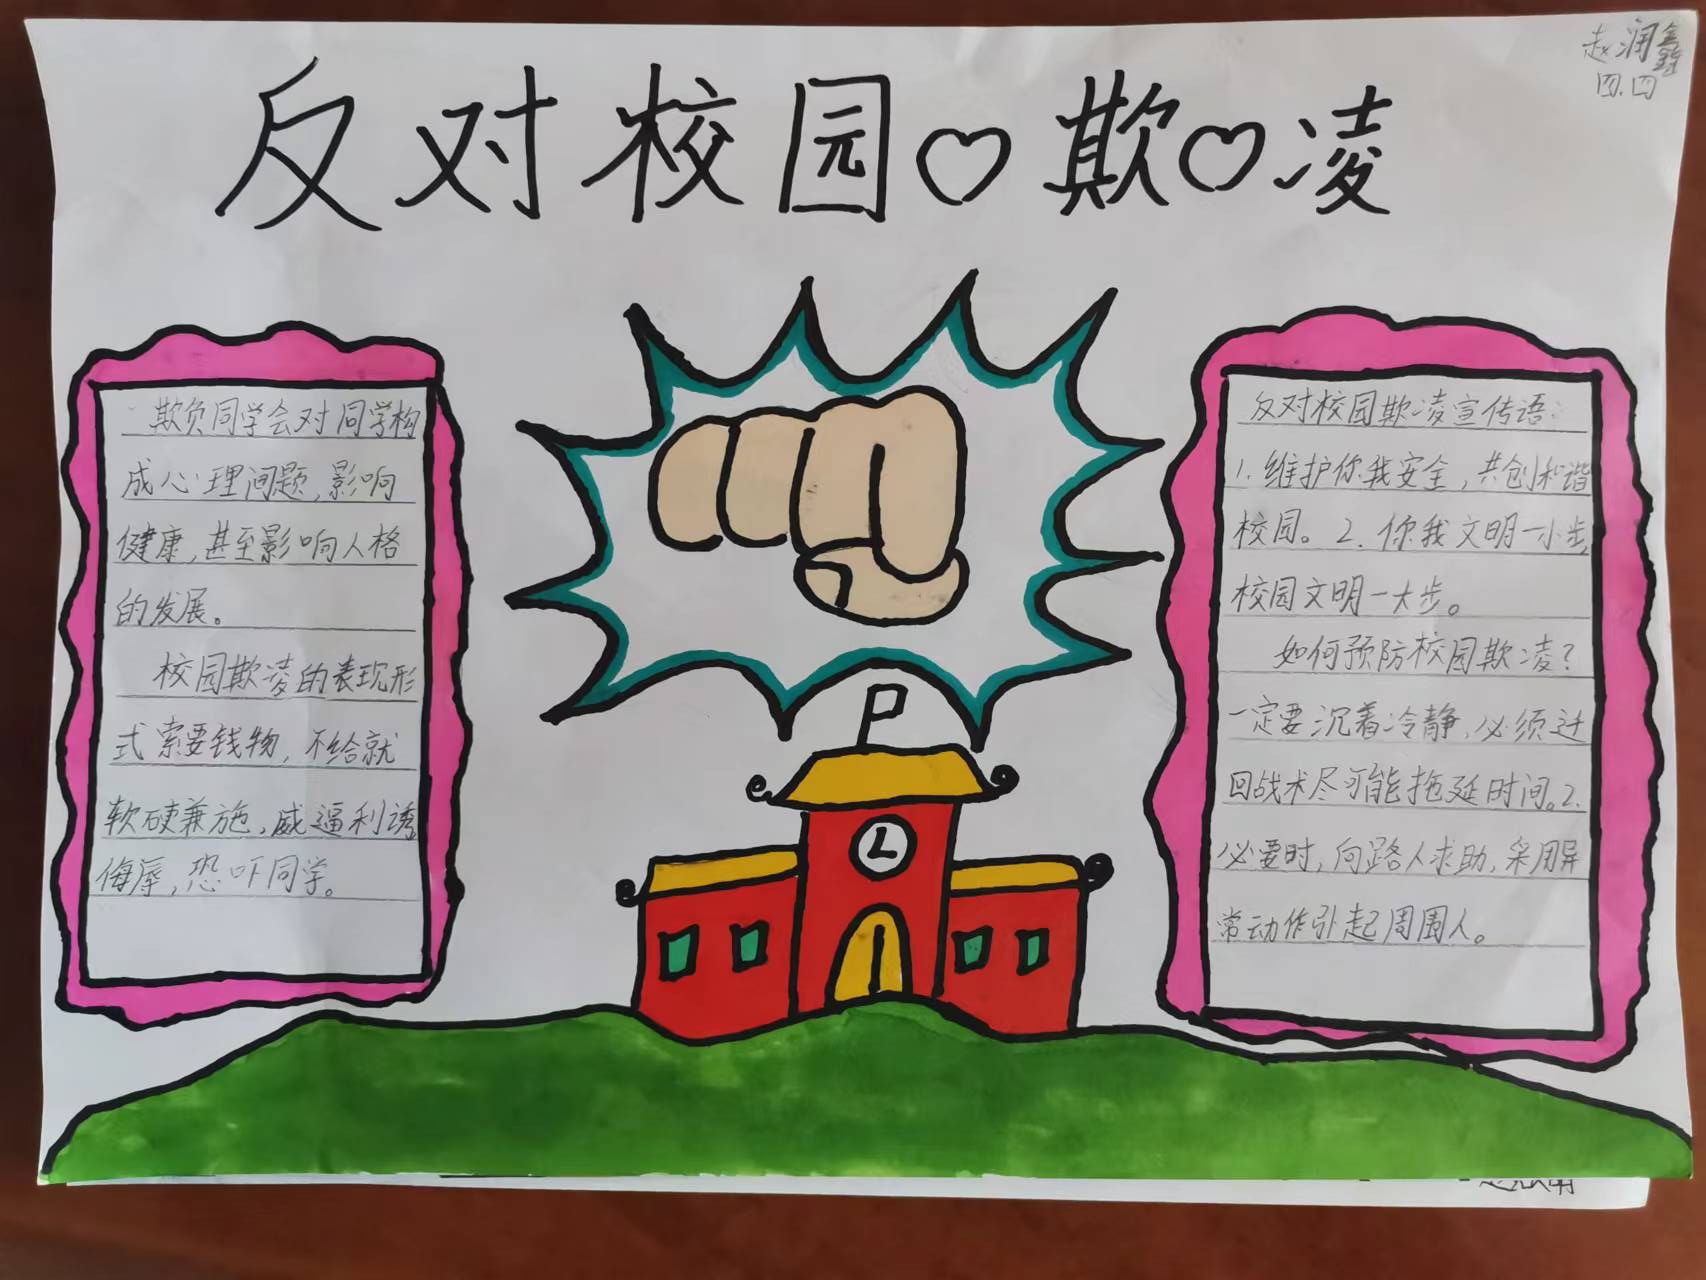 赵润鑫
四.四
反对校园欺凌
欺负同学会对同学构
成心理问题,影响
健康,甚至影响人格
的发展。
校园欺凌的表现形
式索要钱物,不给就
软硬兼施,威逼利诱
侮辱,恐吓同学。
反对校园欺凌宣传语:
1.维护你我安全,共创和谐
校园。2.你我文明一小步,
校园文明一大步。
如何预防校园欺凌?
一定要沉着冷静,必须迂
回战术尽可能拖延时间。2.
必要时,向路人求助,采用异
常动作引起周围人。